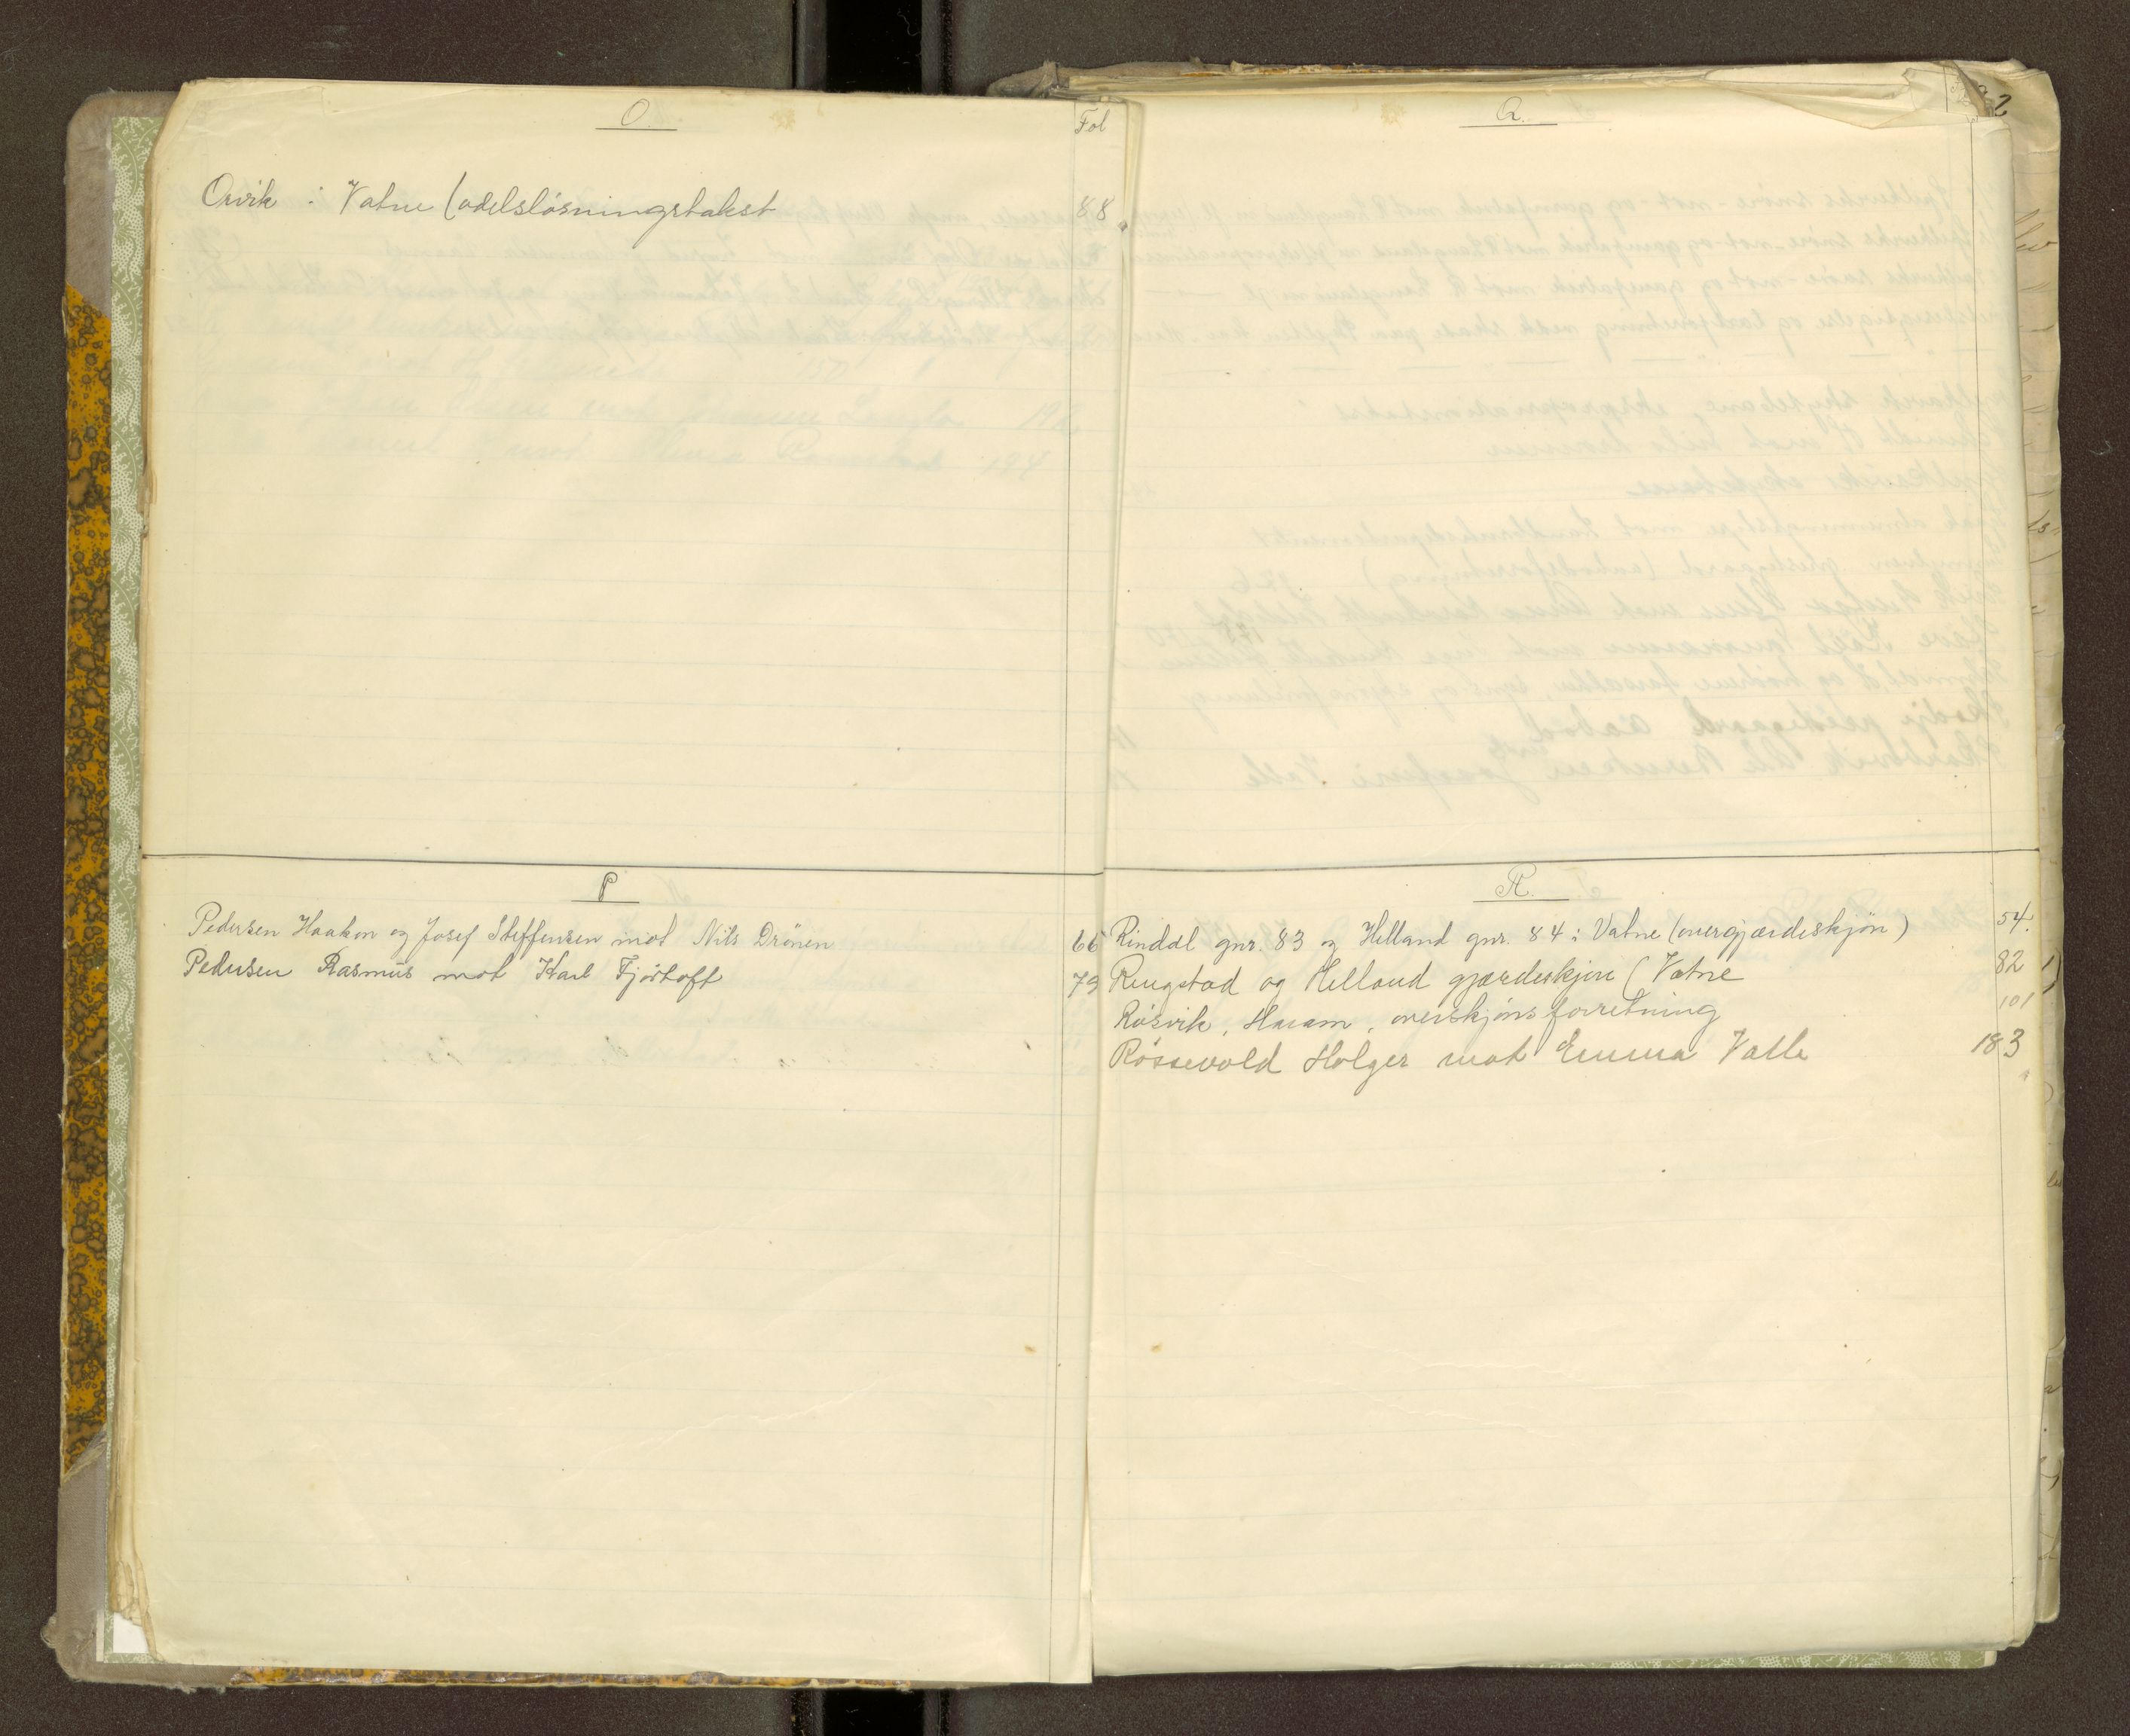 O.
Fol
Orvik i Vatne (odelsløsningstakst 88
P
Pedersen Haakon og Josef Steffensen mot Nils Drönen 66
Pedersen Rasmus mot Karl Fjörtoft 79
Q.
R.
Rindal gnr. 83 og Helland gnr. 84 i Vatne (overgjærdeskjön) 54.
Ringstad og Helland gjærdeskjøn (Vatne 82
Røsvik, Haram, overskjønsforretning 101
Røssevold Holger mot Emma Valle 183